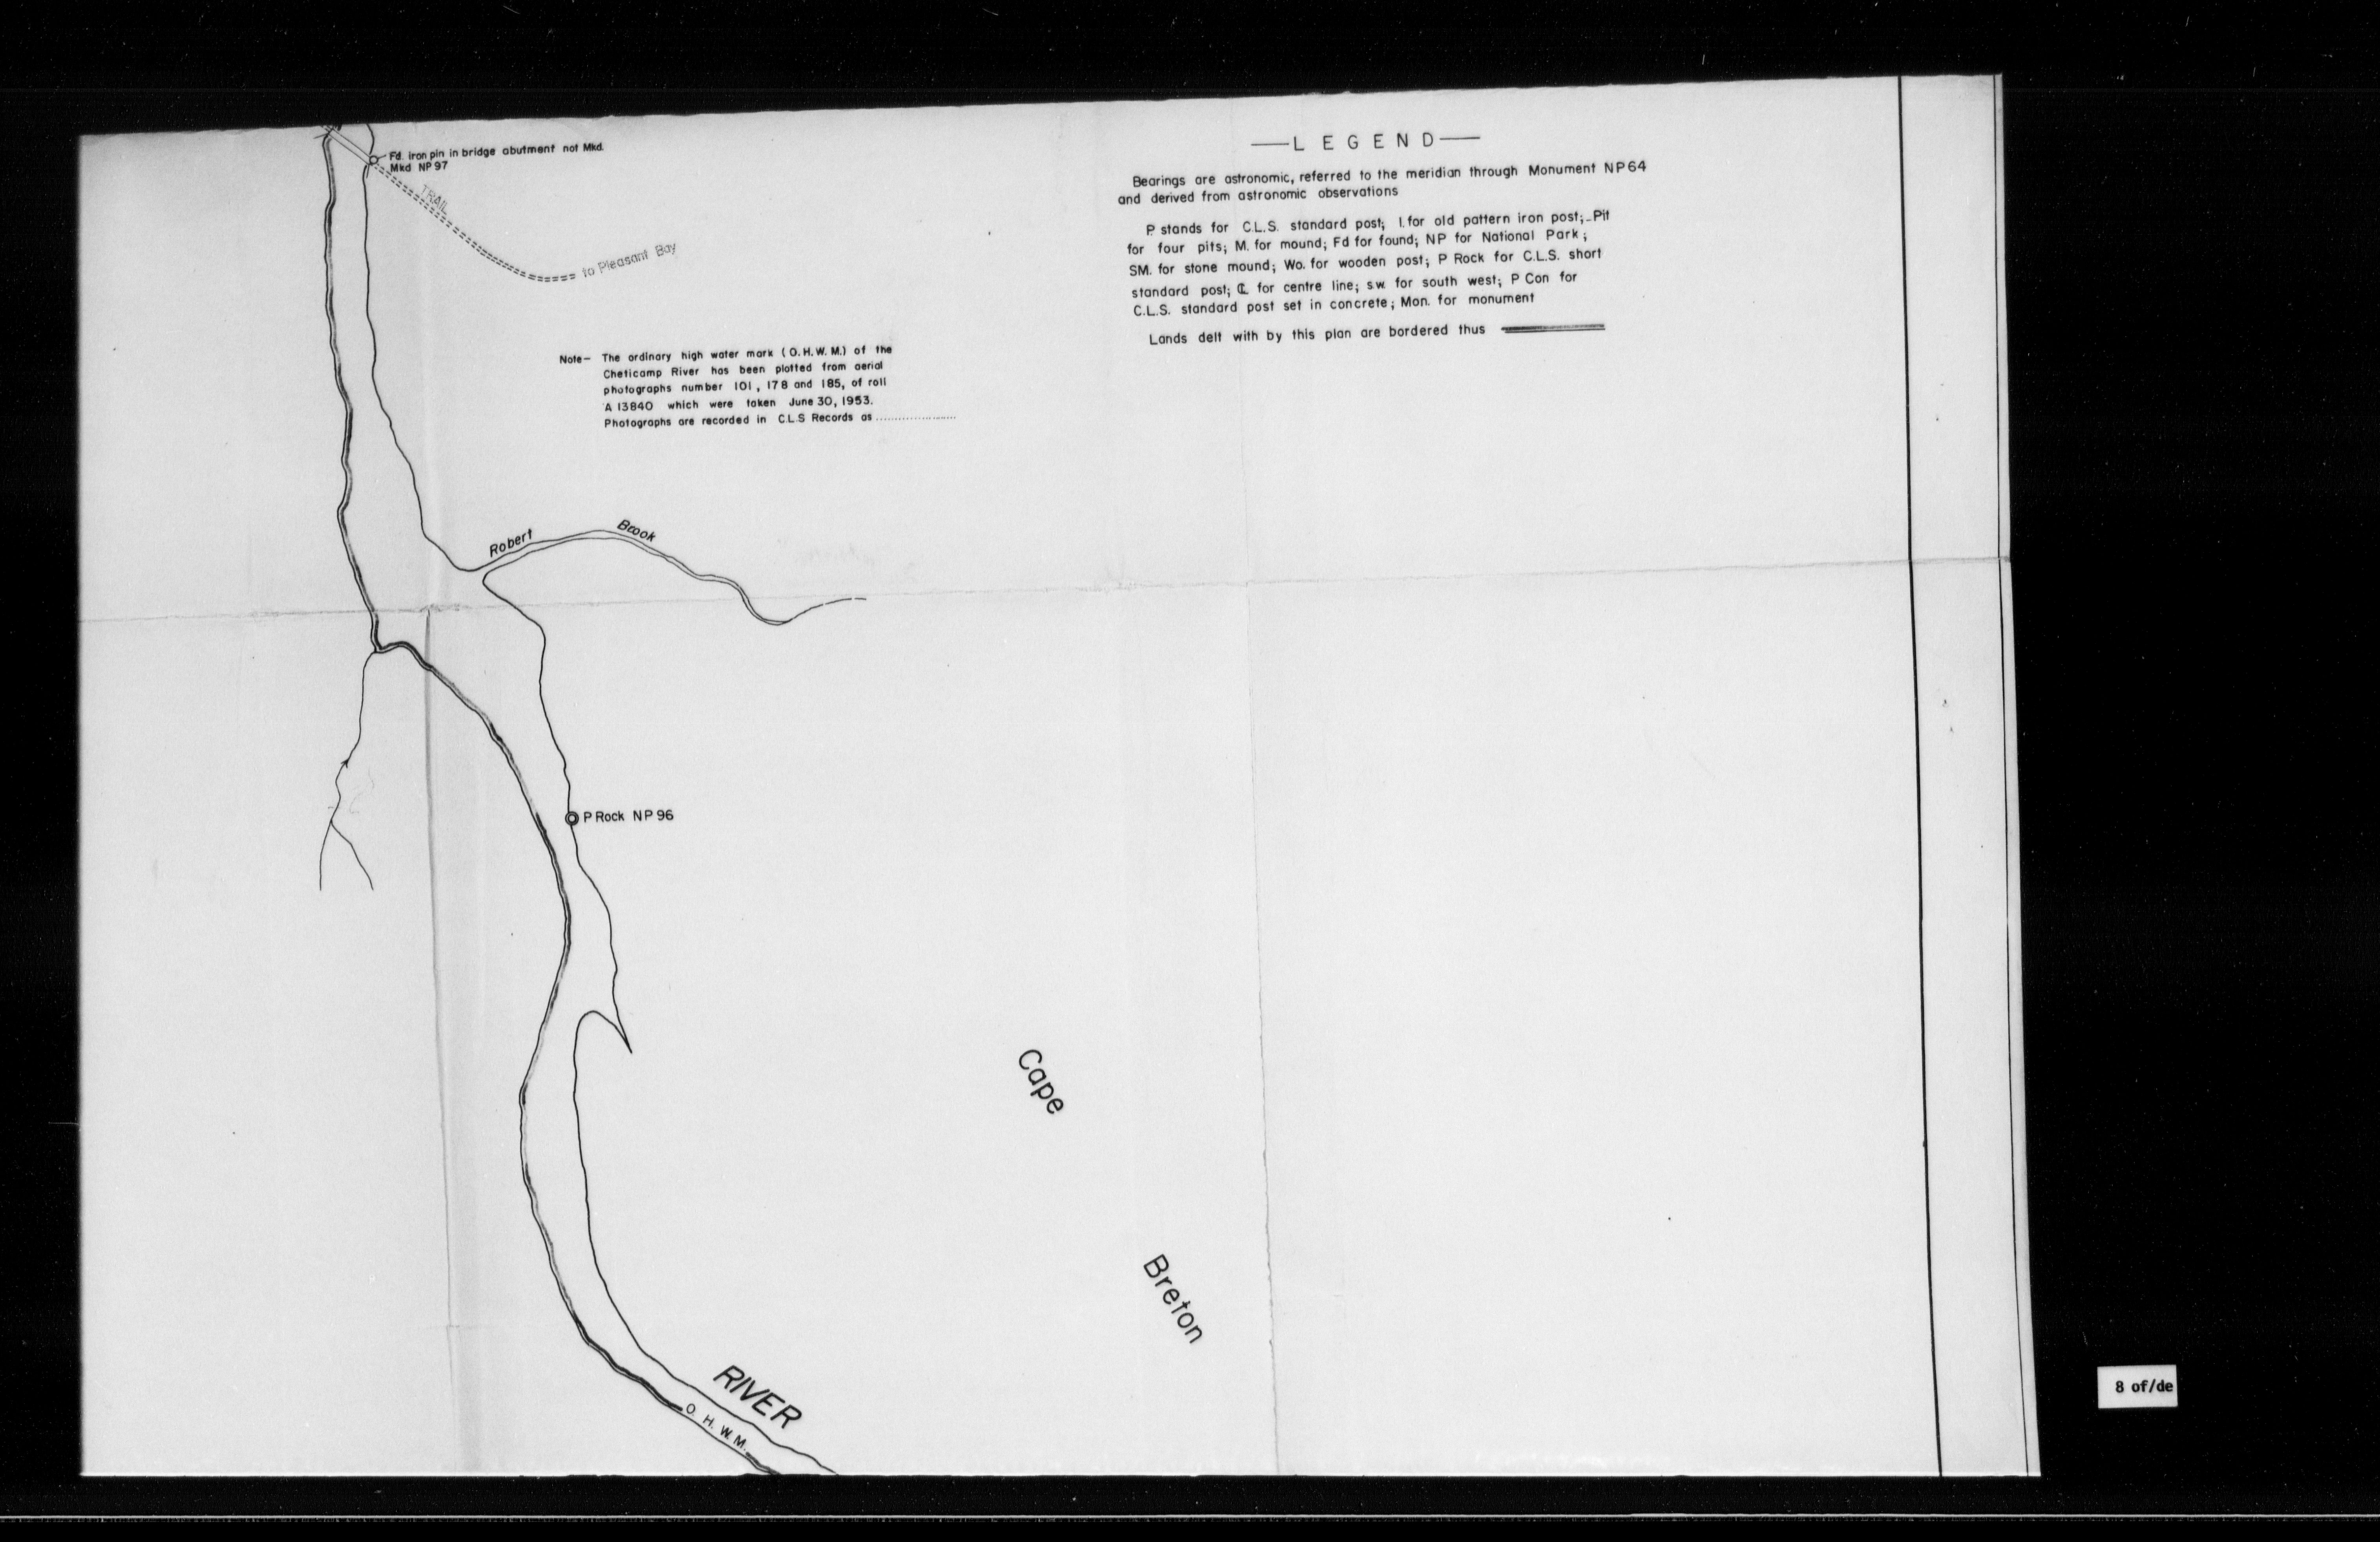 Fd. iron pin in bridge abutment not Mkd.
Mkd NP 97
TRAIL
to Pleasant Bay
— L E G E N D —
Bearings are astronomic, referred to the meridian through Monument NP 64
and derived from astronomic observations
P. stands for C.L.S. standard post; I. for old pattern iron post; Pit
for four pits; M. for mound; Fd for found; NP for National Park;
SM. for stone mound; Wo. for wooden post; P Rock for C.L.S. short
standard post; ℄ for centre line; s.w. for south west; P Con for
C.L.S. standard post set in concrete; Mon. for monument
Lands delt with by this plan are bordered thus
Note— The ordinary high water mark (O.H.W.M.) of the
Cheticamp River has been plotted from aerial
photographs number 101, 178 and 185, of roll
A 13840 which were taken June 30, 1953.
Photographs are recorded in C.L.S Records as .....................
Robert Brook
P Rock NP 96
Cape
Breton
RIVER
O. H. W. M.
8 of/de